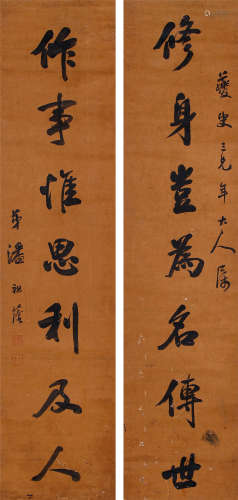 三兄年大人属
修身豈為名傳世
作事惟思利及人
弟潘祖蔭